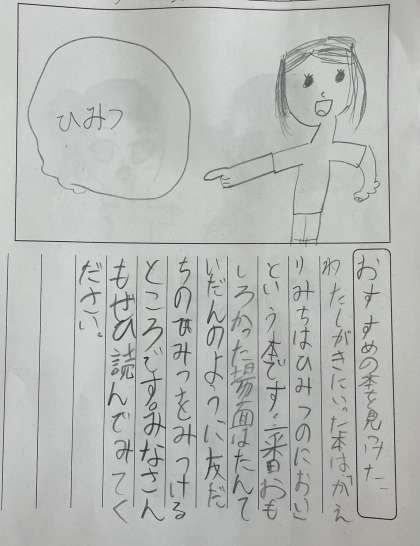 ひみつ
おすすめの本を見つけた
わたしがきにいった本は「かえ
りみちはひみつのにおい」
という本です。一番おも
しろかった場面はたんて
いだんのように友だ
ちのひみつをみつける
ところです。みなさん
もぜひ読んでみてく
ださい。